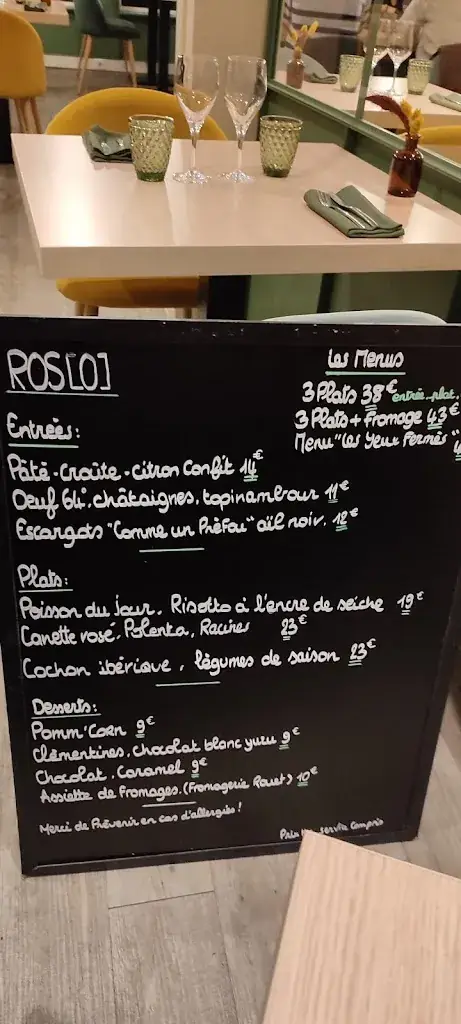 ROS[O]
Les Menus
3 Plats 38€ entrée-plat.
3 Plats + Fromage 43€
Menu "Les Yeux Fermés"
Entrées:
Pâté-Croûte. Citron Confit 14€
Oeuf 64°. châtaignes, topinambour 11€
Escargots "Comme un Pâté fou" aïl noir. 12€
Plats:
Poisson du jour. Risotto à l'encre de seiche 19€
Canette rosé, Polenta, Racines 23€
Cochon ibérique, légumes de saison 23€
Desserts:
Pomm'Corn 9€
Clémentines, chocolat blanc yuzu 9€
Chocolat. Caramel 9€
Assiette de Fromages. (Fromagerie Rouet) 10€
Merci de Prévenir en cas d'allergies!
Prix service Compris